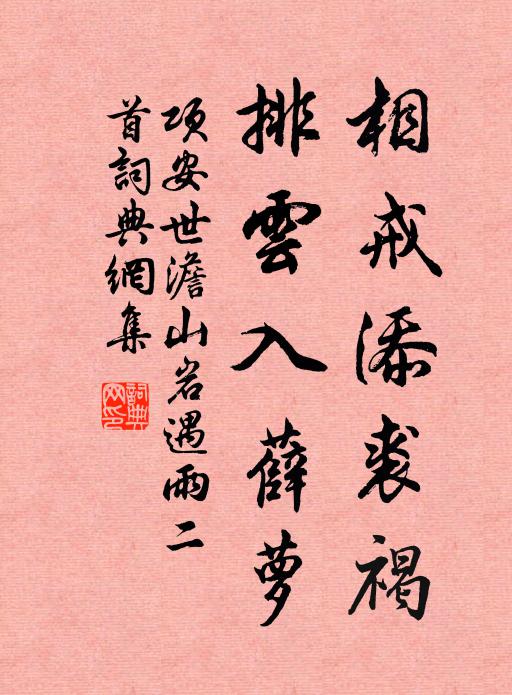 相戒添裘褐
排雲入薜蘿
項安世澹山岩遇雨二
首詞典網集
詞典
网印